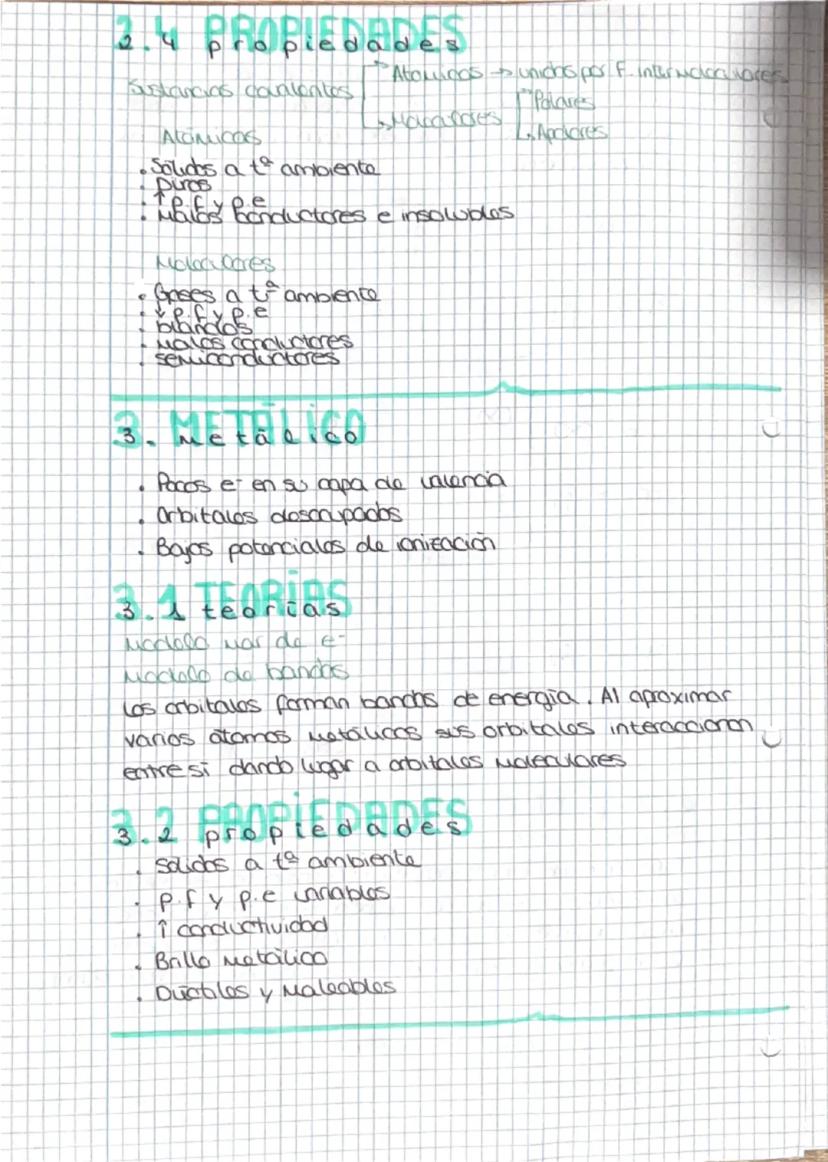 2.4 PROPIEDADES
propiedades
Sustancias covalentes
Atómicas → unidas por F. intermoleculares
Moleculares
Polares
Apolares
Atómicas
. Sólidos a tª ambiente
. Duros
. ↑ p.f y p.e
. Malos conductores e insolubles
Moleculares
. Gases a tª ambiente
. ↓ p.f y p.e
. blandos
. malos conductores
. semiconductores
3. METÁLICO
metálico
. Pocos e⁻ en su capa de valencia
. Orbitales desocupados
. Bajos potenciales de ionización
3.1 TEORÍAS
teorías
Modelo mar de e⁻
Modelo de bandas
Los orbitales forman bandas de energía. Al aproximar
varios átomos metálicos sus orbitales interaccionan
entre sí dando lugar a orbitales moleculares
3.2 PROPIEDADES
propiedades
. Sólidos a tª ambiente
. p.f y p.e variables
. ↑ conductividad
. Brillo metálico
. Dúctiles y maleables